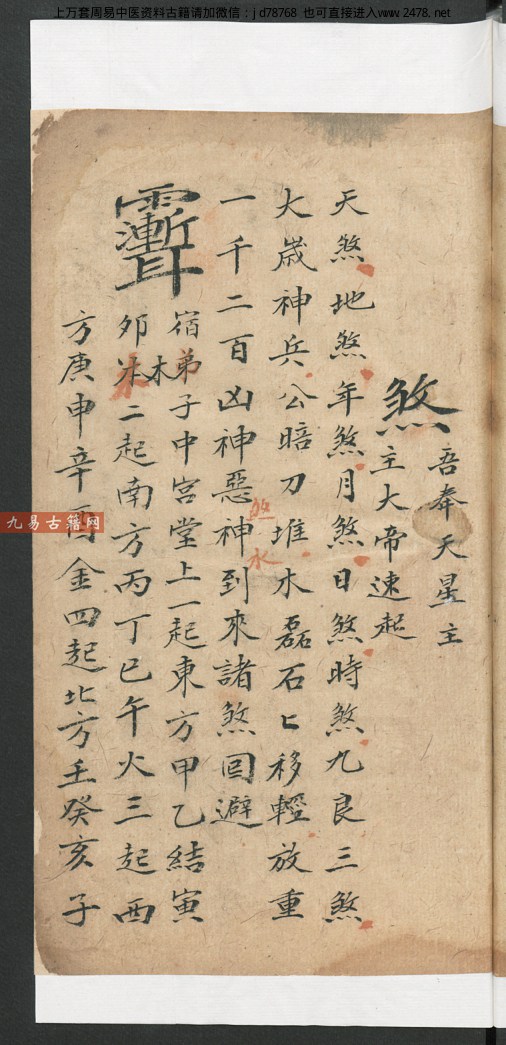 上万套周易中医资料古籍请加微信：jd78768 也可直接进入www.2478.net
煞 吾奉天星主
主大帝速起
天煞地煞年煞月煞日煞時煞九良三煞
大歲神兵公暗刀堆木磊石匕移輕放重
一千二百凶神惡神到來諸煞回避
煞水
宿弟子中宫堂上一起東方甲乙結寅
卯木二起南方丙丁巳午火三起西
木
方庚申辛酉金四起北方壬癸亥子
九易古籍网